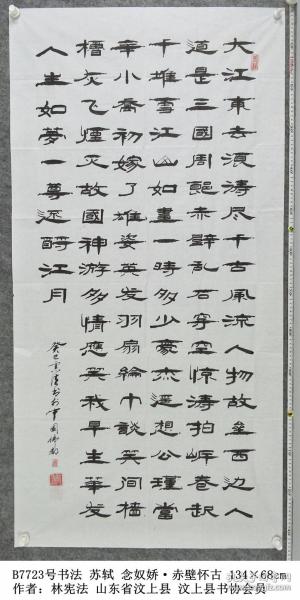 大江東去浪濤尽千古風流人物故壘西边人
道是三國周郎赤壁乱石穿空惊濤拍岸卷起
千堆雪江山如畫一時多少豪杰遥想公瑾當
年小喬初嫁了雄姿英发羽扇綸巾談笑间檣
櫓灰飞煙灭故國神游多情應笑我早生華发
人生如夢一尊还酹江月
癸巳憲法书於中國佛都
B7723号书法 苏轼 念奴娇·赤壁怀古 134×68cm
作者：林宪法 山东省汶上县 汶上县书协会员